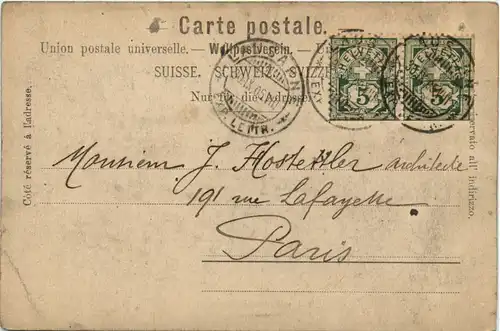 Carte postale.
Union postale universelle. — Weltpostverein. —
SUISSE. SCHWEIZ.
Nur für die Adresse.
Côté réservé à l'adresse.
riservato all' indirizzo.
5 5
Monsieur J. Hostettler architecte
191 rue Lafayette
Paris